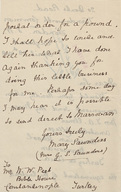 postal order for a pound.
I shall hope to write and
let him what I have done
Again thanking you for
doing this little business
for me. Perhaps some day
I may hear it is possible
to send direct to Marsovan
Yours truly
Mary Saunders
To
Mr. W. W. Peet
Bible House
Constantinople
Turkey